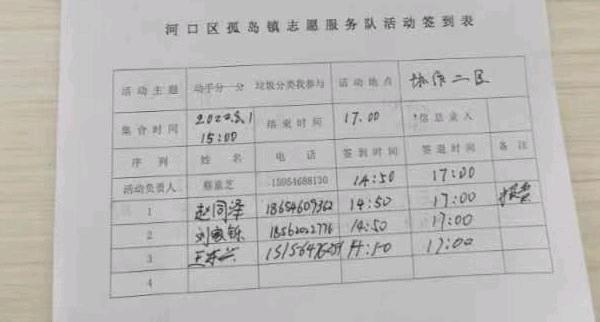 河口区孤岛镇志愿服务队活动签到表
活动主题 动手分一分 垃圾分类我参与 活动地点 协作二区
集合时间 2022.8.1 15:00 结束时间 17.00 信息录入
序列 姓名 电话 签到时间 签退时间 备注
活动负责人 15954688130 14:50 17:00
1 赵同泽 18654609362 14:50 17:00
2 刘家铄 18562022776 14:50 17:00
3 14:50 17:00
4